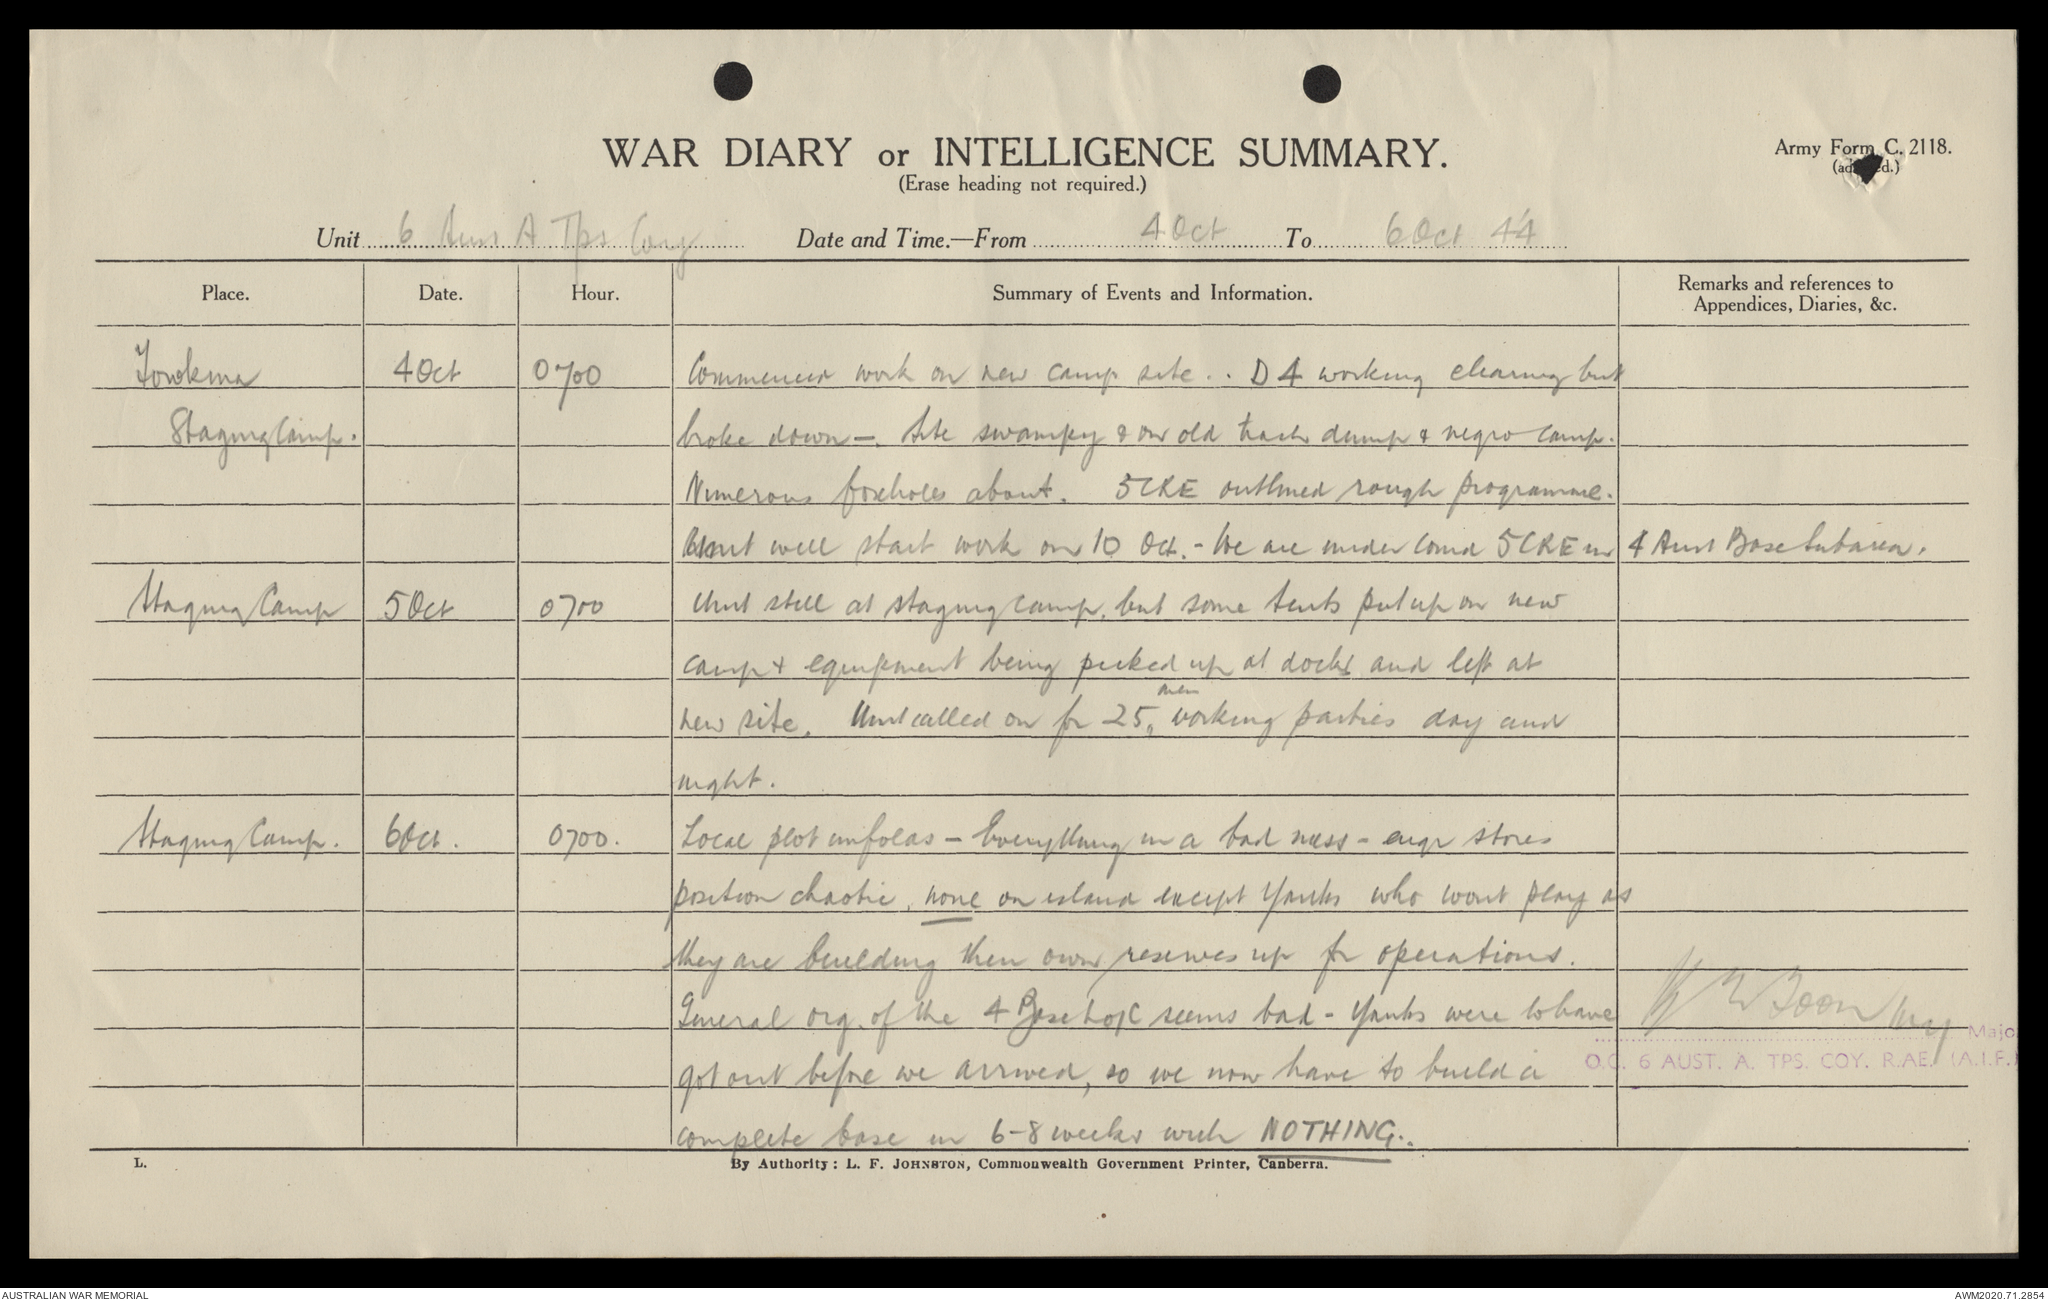 WAR DIARY or INTELLIGENCE SUMMARY.
(Erase heading not required.)
Army Form C. 2118.
Unit 6 Aust A Tps Coy Date and Time.—From 4 Oct To 6 Oct 44
Place. Date. Hour. Summary of Events and Information. Remarks and references to
Appendices, Diaries, &c.
Torokina 4 Oct 0700 Commenced work on new camp site.. D4 working clearing but
Staging Camp. broke down —. Site swampy & on old trash dump & negro camp.
Numerous foxholes about. 5CRE outlined rough programme.
Unit will start work on 10 Oct. - We are under Comd 5CRE in 4 Aust Base Subarea.
Staging Camp 5 Oct 0700 Unit still at staging camp, but some tents put up on new
camp & equipment being picked up at docks and left at
new site. Unit called on for 25 men working parties day and
night.
Staging Camp. 6 Oct. 0700. Local plot unfolds — Everything in a bad mess - engr stores
position chaotic, none on island except Yanks who wont play as
they are building their own reserves up for operations.
General org. of the 4 Base seems bad - Yanks were to have
got out before we arrived, so we now have to build a
complete base in 6-8 weeks with NOTHING..
Major
O.C. 6 AUST. A. TPS. COY. R.A.E. (A.I.F.)
L. By Authority: L. F. JOHNSTON, Commonwealth Government Printer, Canberra.
AUSTRALIAN WAR MEMORIAL AWM2020.71.2854